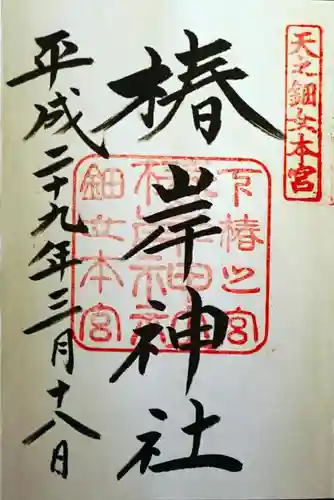 天之鈿女本宮
椿岸神社
下椿之宮
鈿女本宮
平成二十九年三月十八日